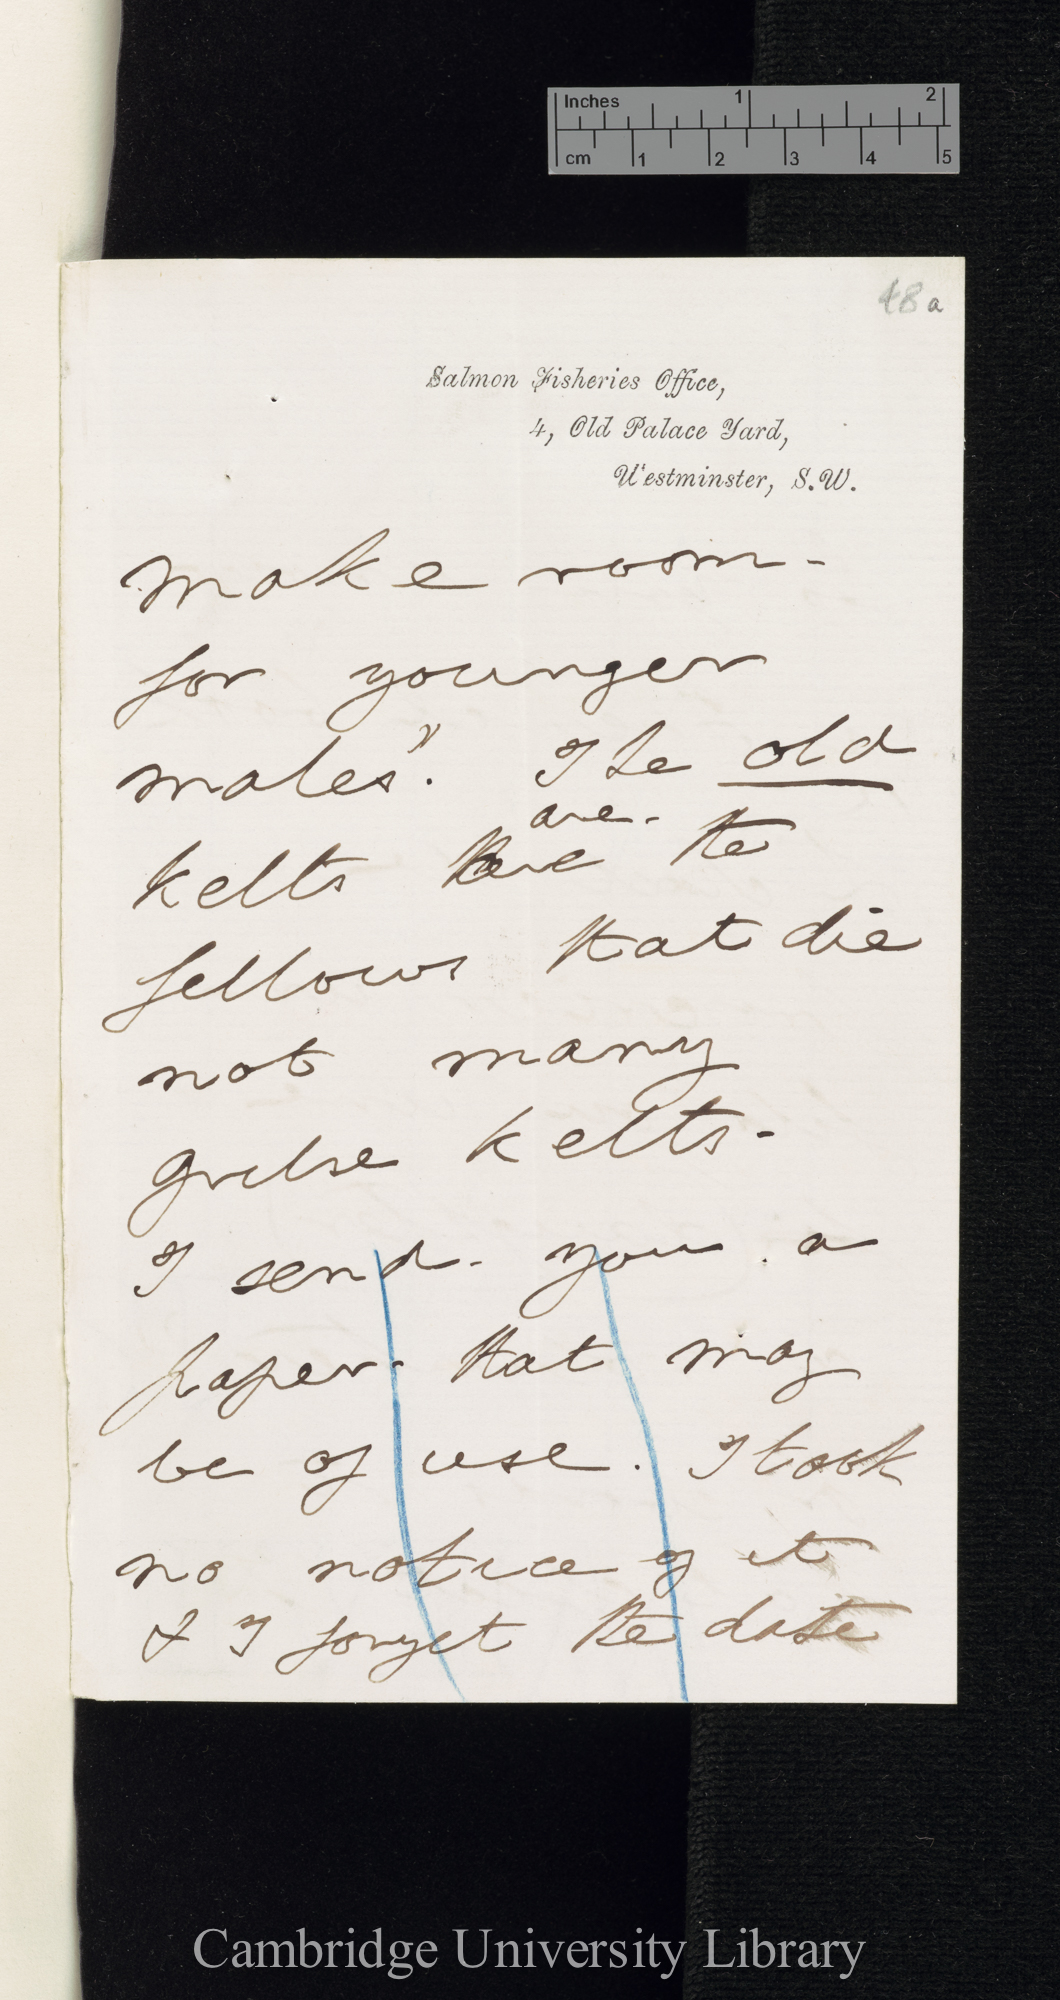 Inches 1 2
cm 1 2 3 4 5
48a
Salmon Fisheries Office,
4, Old Palace Yard,
Westminster, S.W.
make room -
for younger
males". The old
are -
kelts the
fellows that die
not many
grilse kelts -
I send - you a
paper - that may
be of use. I took
no notice of it
& I forget the date
Cambridge University Library